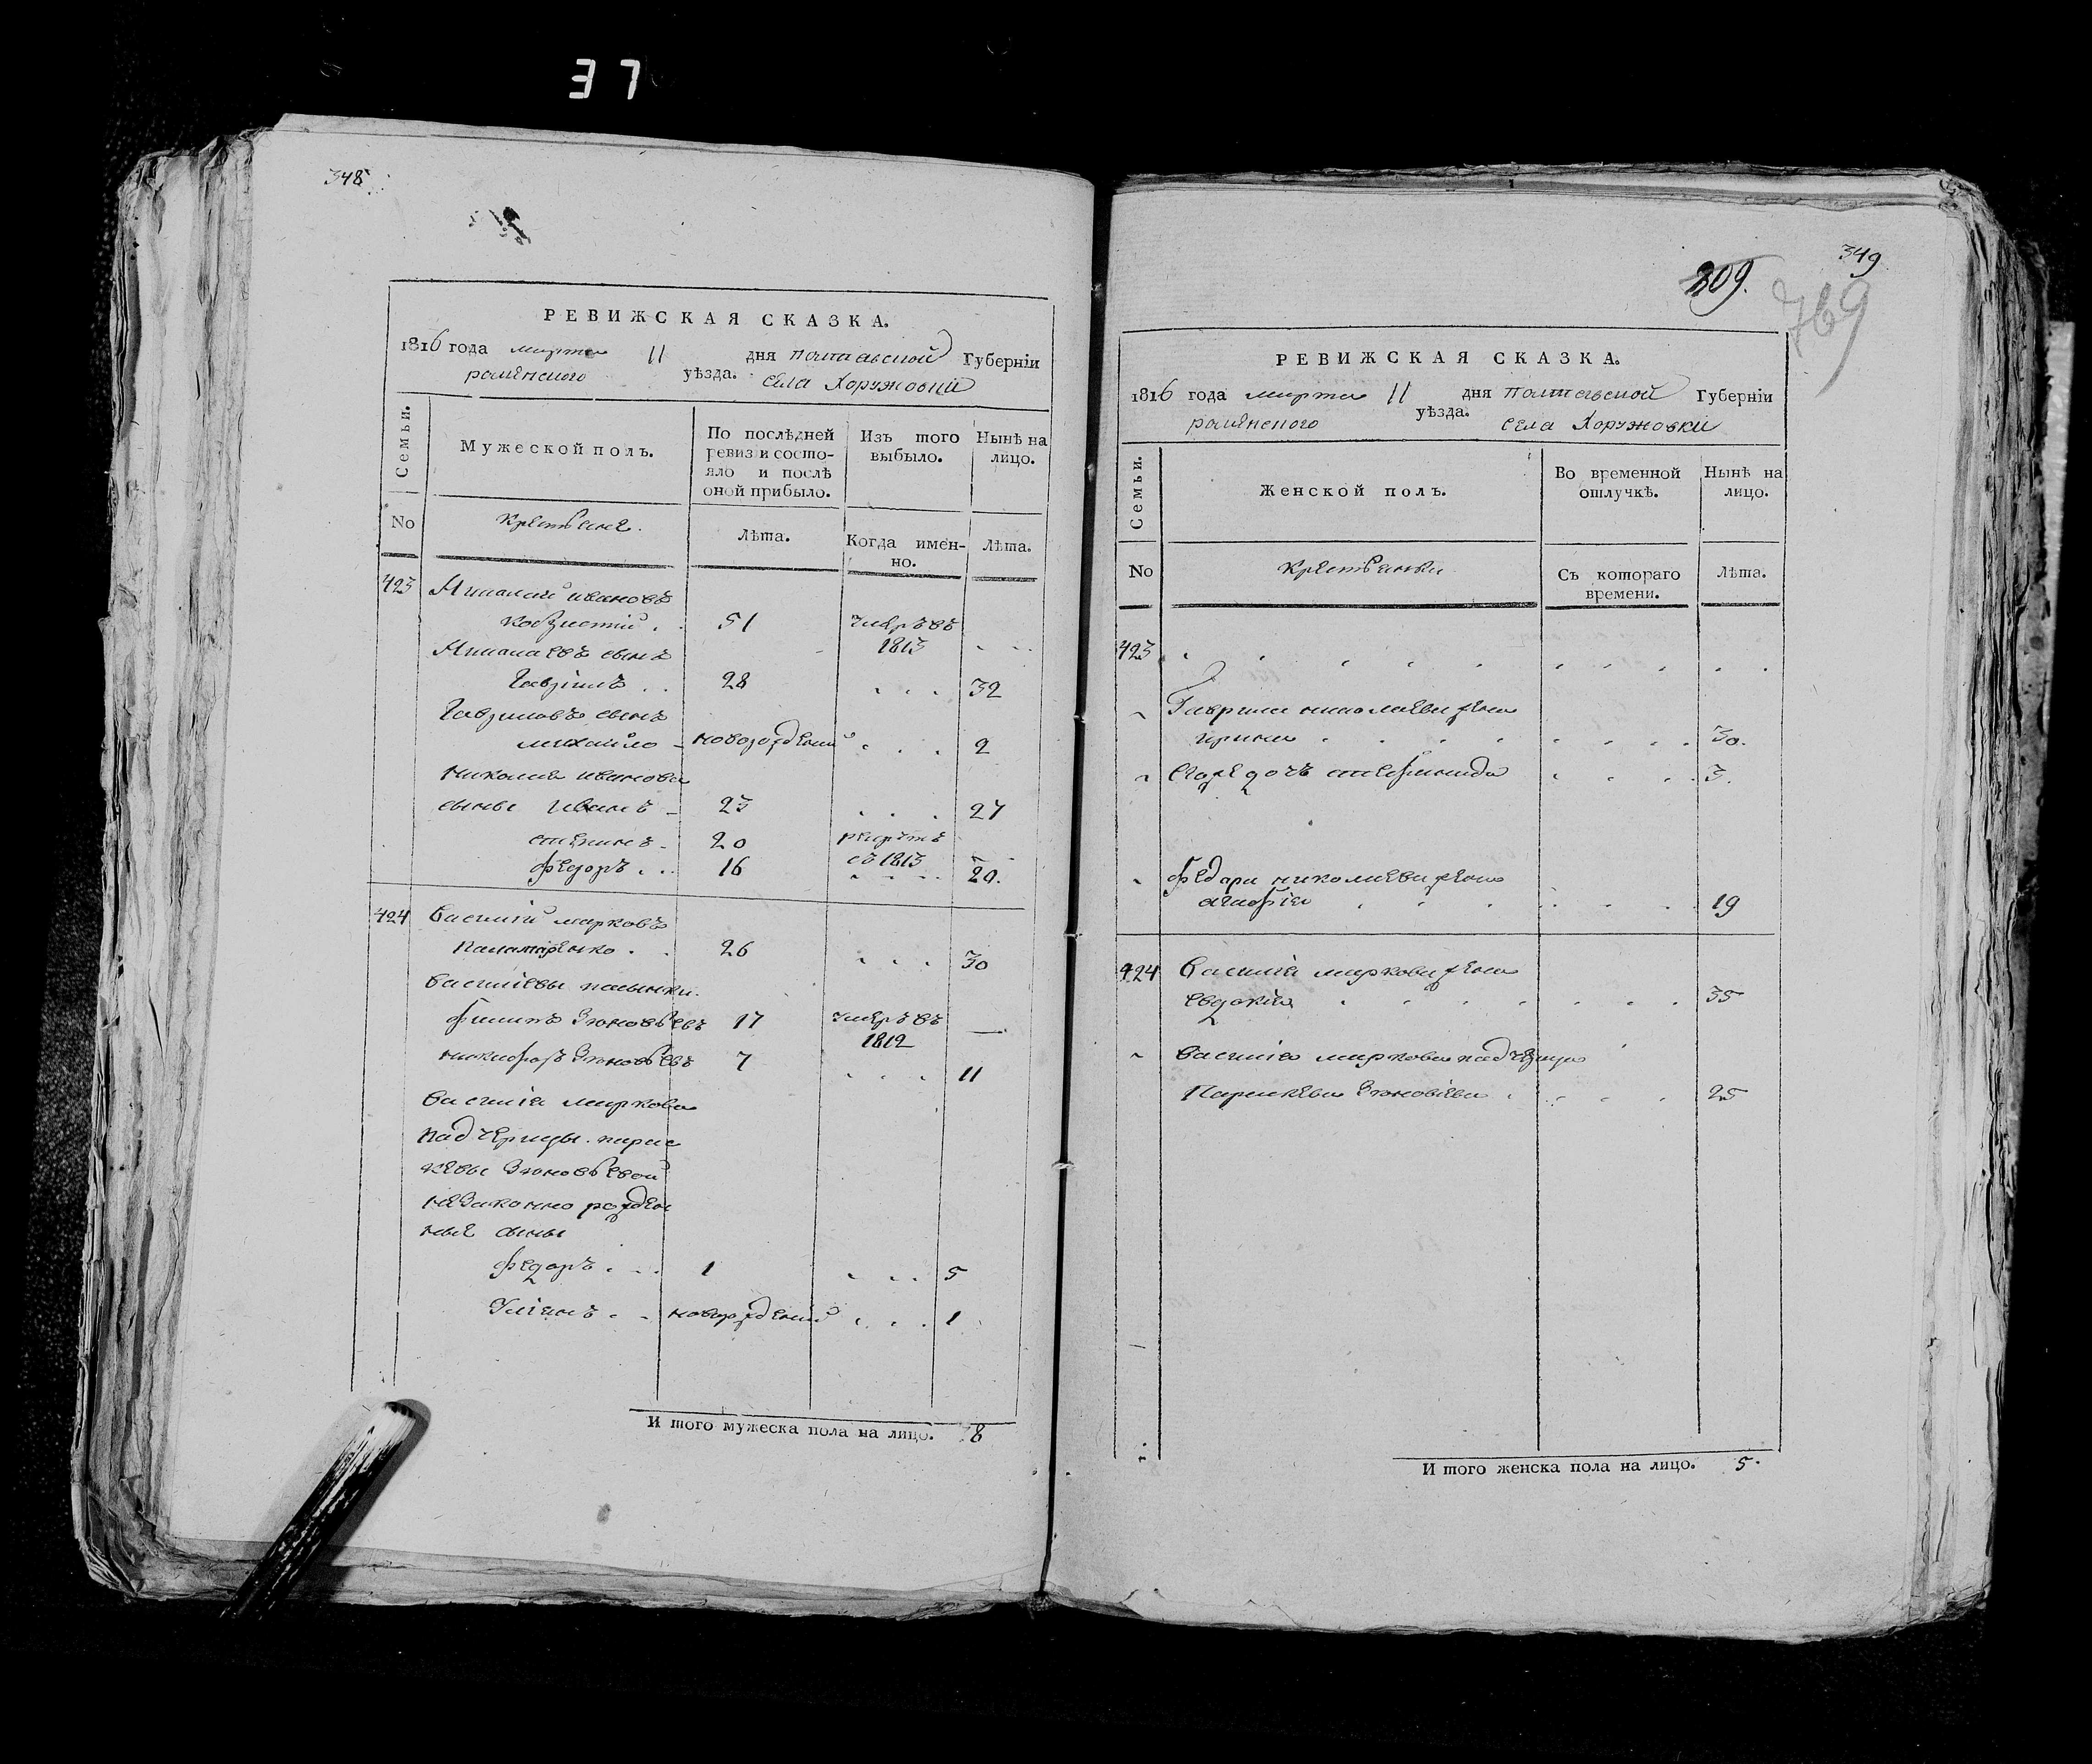 37
348
РЕВИЖСКАЯ СКАЗКА.
1816 года марта 11 дня полтавской Губерніи
роменского уѣзда. села Хоружовки
Семьи.
Мужеской полъ.
По послѣдней ревизіи состояло и послѣ оной прибыло.
Изъ того выбыло.
Нынѣ на лицо.
No
крестьяне.
лѣта.
Когда именно.
лѣта.
423 Николай ивановъ
51 умеръ въ
1813
Николаевъ сынъ
Гаврилъ . . 28 . . . 32
Гавриловъ сынъ
михайло - новорожденый . . . 2
николая иванова
сыны иванъ - 23 . . . 27
степанъ - 20 рекрутъ
съ 1813
федоръ . . . 16 . . . . 20.
424 Василій марковъ
Паламаренко . . 26 . . . 30
василіевы пасынки.
филипъ Зѣновьевъ 17 умеръ въ —
1812
никифоръ Зѣновьевъ 7 . . . 11
василія маркова
падчерицы . парас
кевы Зѣновьевой
незаконно рожден
ные сыны
федоръ . . . 1 . . . 5
Уліянъ . . новорожденый . . . 1
И того мужеска пола на лицо. 8
349
209.
769
РЕВИЖСКАЯ СКАЗКА.
1816 года марта 11 дня полтавской Губерніи
роменского уѣзда. села Хоружовки
Семьи.
Женской полъ.
Во временной отлучкѣ.
Нынѣ на лицо.
No
крестьянки
Съ котораго времени.
лѣта.
423 . . . . . . . . . .
Гаврила николаева жена
ирина . . . . . . . . 30.
Егоже дочь степанида . . . . 3.
федора николаева жена
агафія . . . . . . 19
424 василія маркова жена
евдокія . . . . . . . . 35
василія маркова падчерица
Параскева Зѣновіева . . . . 25
И того женска пола на лицо. 5.